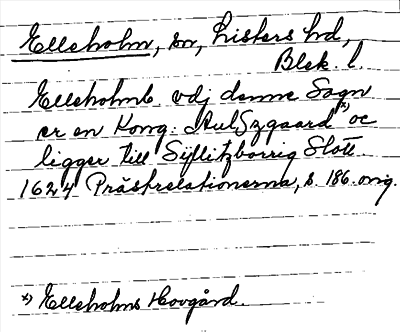 Elleholm, sn, Listers hd,
Blek. l.
Elleholmb. vdj denne Sogn
er en Kong. Aulszgaard x) oc
ligger till Syllitzborrig Slott.
1624 Prästrelationerna, s. 186. orig.
x) Elleholms Hovgård.